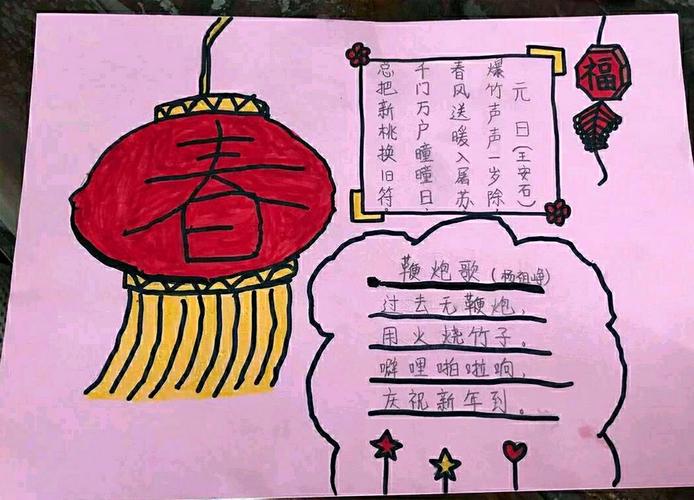 春
元日(王安石)
爆竹声声一岁除,
春风送暖入屠苏
千门万户瞳瞳日,
总把新桃换旧符。
福
鞭炮歌
过去无鞭炮,
用火烧竹子。
噼哩啪啦响,
庆祝新年到。